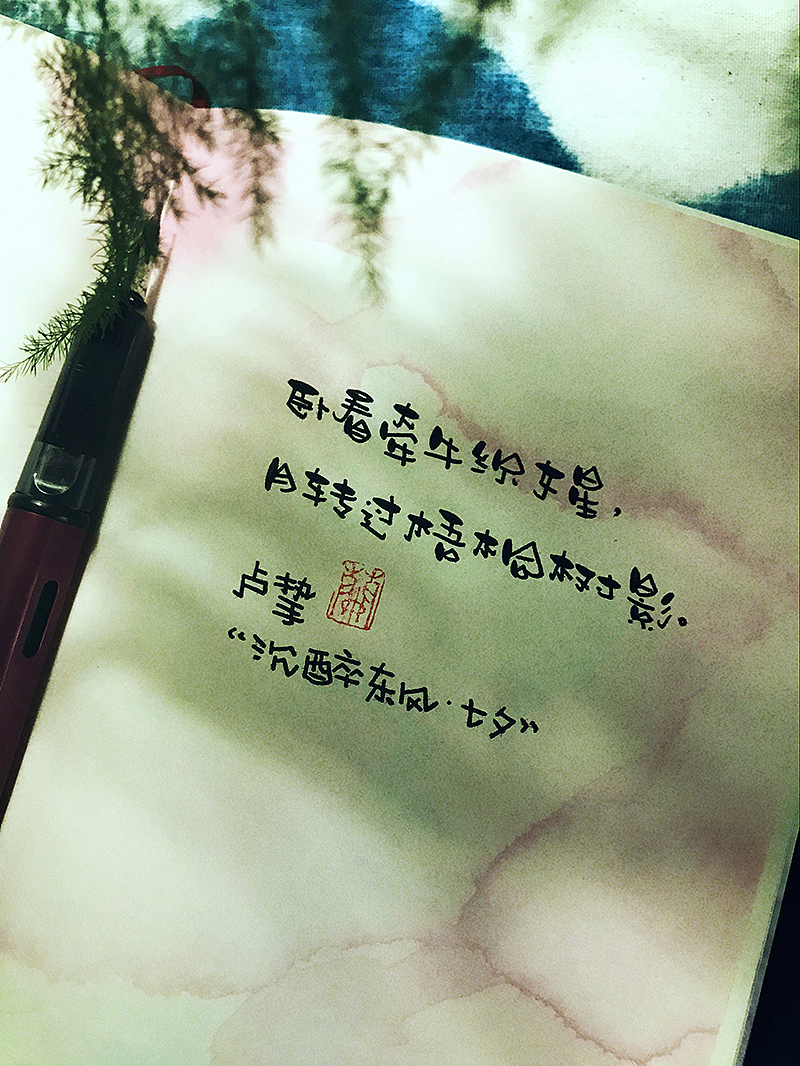 卧看牵牛织女星，
月转过梧桐树影。
卢挚
“沉醉东风·七夕”